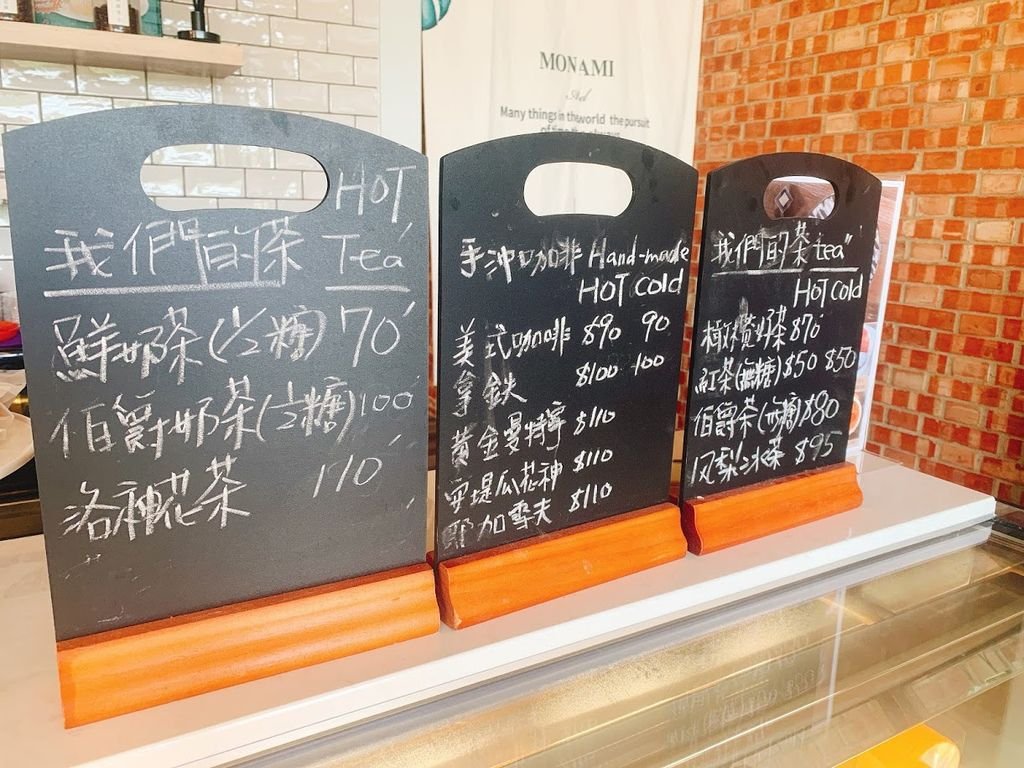 MONAMI
Ad
Many things in the world the pursuit
HOT
我們的茶 Tea
鮮奶茶(1/2糖) 70
伯爵奶茶(1/2糖) 100
洛神花茶 110
手沖咖啡 Hand-made
HOT cold
美式咖啡 $90 90
拿鉄 $100 100
黃金曼特寧 $110
安堤瓜花神 $110
耶加雪夫 $110
我們的茶 tea
HOT cold
橄欖奶茶 $70
紅茶(無糖) $50 $50
伯爵茶(無糖) $80
凤梨冰茶 $95